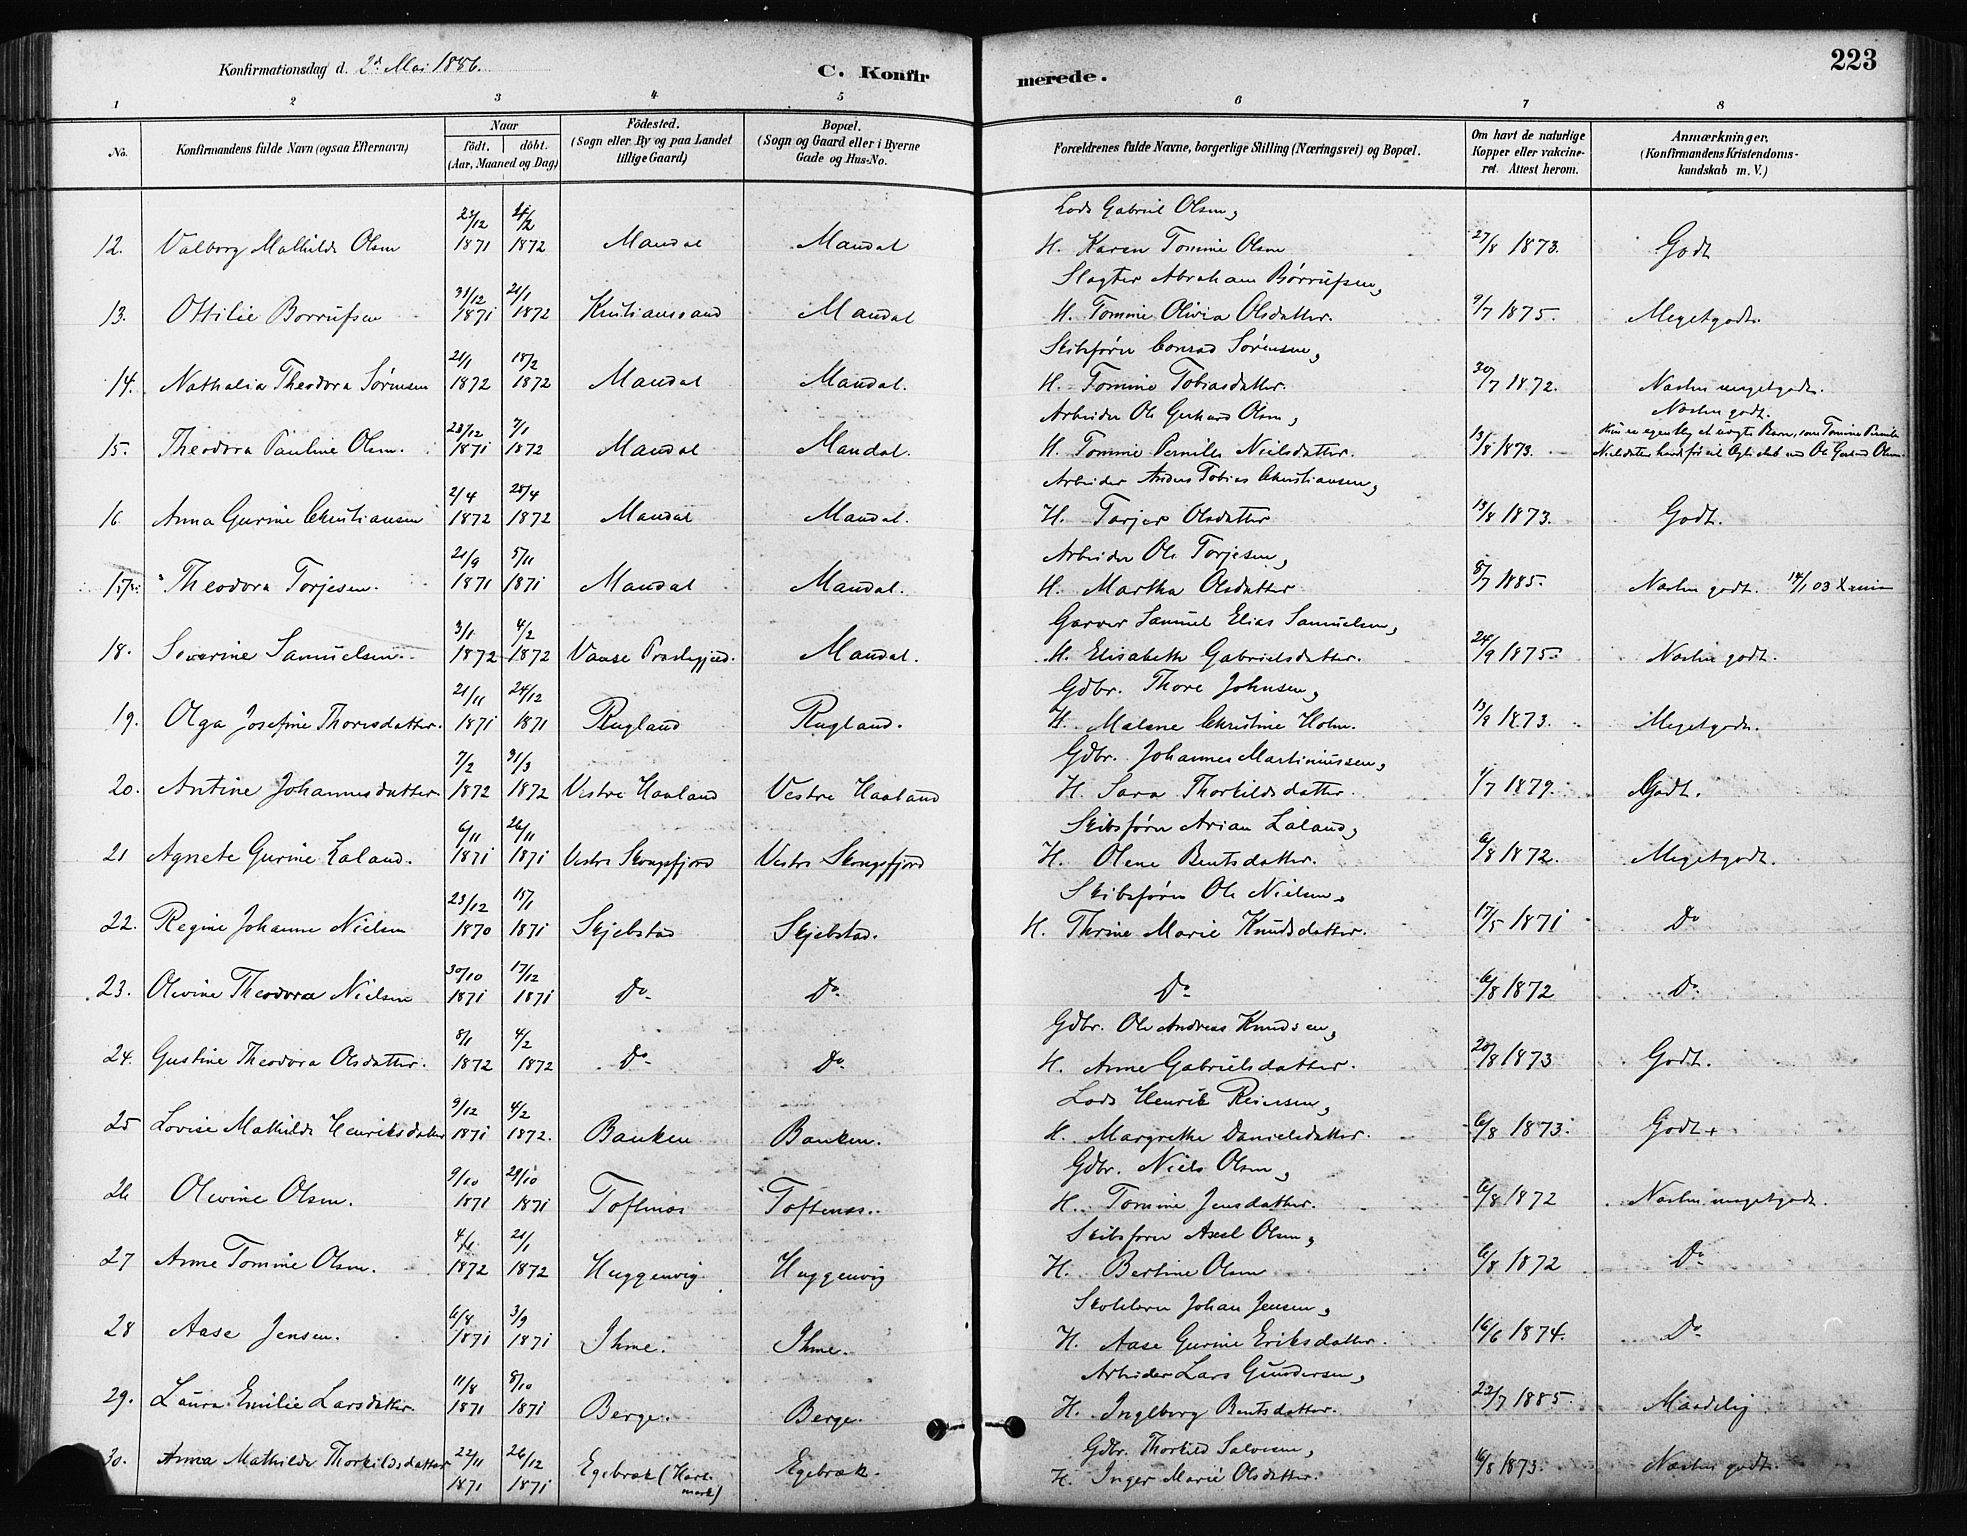 Konfirmationsdag d. 2d Mai 1886.
C. Konfir
merede.
223
1 2 3 4 5 6 7 8
No.
Konfirmandens fulde Navn (ogsaa Efternavn)
Naar
födt. döbt.
(Aar, Maaned og Dag)
Födested.
(Sogn eller By og paa Landet
tillige Gaard)
Bopæl.
(Sogn og Gaard eller i Byerne
Gade og Hus-No.
Forældrenes fulde Navne, borgerlige Stilling (Næringsvei) og Bopæl.
Om havt de naturlige
Kopper eller vakcine-
ret. Attest herom.
Anmærkninger.
(Konfirmandens Kristendoms-
kundskab m. V.)
23/12 24/2 Lods Gabriel Olsen,
12. Valborg Mathilde Olsen 1871 1872 Mandal Mandal H. Karen Tomine Olsen 27/8 1873. Godt
31/12 21/1 Slagter Abraham Børrufsen,
13. Ottilie Borrufsen 1871 1872 Kristianssand Mandal H. Tomine Olivia Olsdatter. 9/7 1875. Megetgodt.
21/1 18/2 Skibsfører Conrad Sørensen,
14. Nathalia Theodora Sørensen 1872 1872 Mandal Mandal. H. Tomine Tobiasdatter. 30/7 1872. Næsten megetgodt.
23/12 7/1 Arbeider Ole Gerhard Olsen, Næsten godt.
15. Theodora Pauline Olsen. 1871 1872 Mandal Mandal. H. Tomine Pernille Nielsdatter. 13/8 1873. Hun er egentlig et uægte Barn, som Tomine Pernille
Nielsdatter havde før sit Ægteskab med Ole Gerhard Olsen.
2/4 28/4 Arbeider Anders Tobias Christiansen,
16. Anna Gurine Christiansen 1872 1872 Mandal Mandal. H. Torjer Olsdatter 13/8 1873. Godt.
21/9 5/11 Arbeider Ole Torjesen,
17. Theodora Torjesen. 1871 1871 Mandal Mandal. H. Martha Olsdatter 8/7 1885. Næsten godt. 14/1 03
3/1 4/2 Garver Samuel Elias Samuelsen,
18. Severine Samuelsen. 1872 1872 Vanse Præstegjeld. Mandal. H. Elisabeth Gabrielsdatter. 24/9 1875. Næsten godt.
21/11 24/12 Gdbr. Thore Johnsen,
19. Olga Josefine Thoresdatter. 1871 1871 Rugland Rugland. H. Malene Christine Holm. 13/8 1873. Megetgodt.
7/2 31/3 Gdbr. Johannes Martinussen,
20. Antine Johannesdatter 1872 1872 Vestre Haaland Vestre Haaland H. Sara Thorkildsdatter. 1/7 1879. Godt.
6/11 26/11 Skibsfører Arian Laland,
21 Agnete Gurine Laland. 1871 1871 Vestre Skougsfjord Vestre Skougsfjord H. Olene Bentsdatter. 6/8 1872. Megetgodt.
23/12 15/1 Skibsfører Ole Nielsen.
22. Regine Johanne Nielsen 1870 1871 Skjebstad Skjebstad. H. Thrine Marie Knudsdatter. 17/5 1871 Do
30/10 17/12
23. Olevine Theodora Nielsen 1871 1871 Do Do Do 6/8 1872 Do
8/1 4/2 Gdbr. Ole Andreas Knudsen,
24. Gustine Theodora Olsdatter. 1872 1872 Do Do H. Anne Gabrielsdatter. 20/8 1873 Godt.
9/12 4/2 Lods Henrik Reiersen,
25 Lovise Mathilde Henriksdatter 1871 1872. Banken Banken. H. Margrethe Danielsdatter. 6/8 1873. Godt+
9/10 29/10 Gdbr. Niels Olsen,
26 Olevine Olsen. 1871 1871 Toftenæs Toftenæs. H. Tomine Jensdatter. 6/8 1872 Næsten megetgodt.
4/1 21/1 Skibsfører Axel Olsen,
27 Anne Tomine Olsen. 1872 1872 Huggenvig. Huggenvig H. Bertine Olsen 6/8 1872 Do
6/8 3/9 Skolelærer Johan Jensen,
28 Aase Jensen. 1871 1871 Ihme. Ihme. H. Aase Gurine Eriksdatter. 16/6 1874. Do
11/8 8/10 Arbeider Lars Gundersen,
29. Laura Emilie Larsdatter. 1871 1871 Berge. Berge. H. Ingleborg Bentsdatter. 22/7 1885. Maadelig
22/11 26/12 Gdbr. Thorkild Salvesen,
30. Anna Mathilde Thorkildsdatter 1871 1871 Egebræk (Hart-
mark) Egebræk. H. Inger Marie Olsdatter. 6/8 1873. Næsten godt.